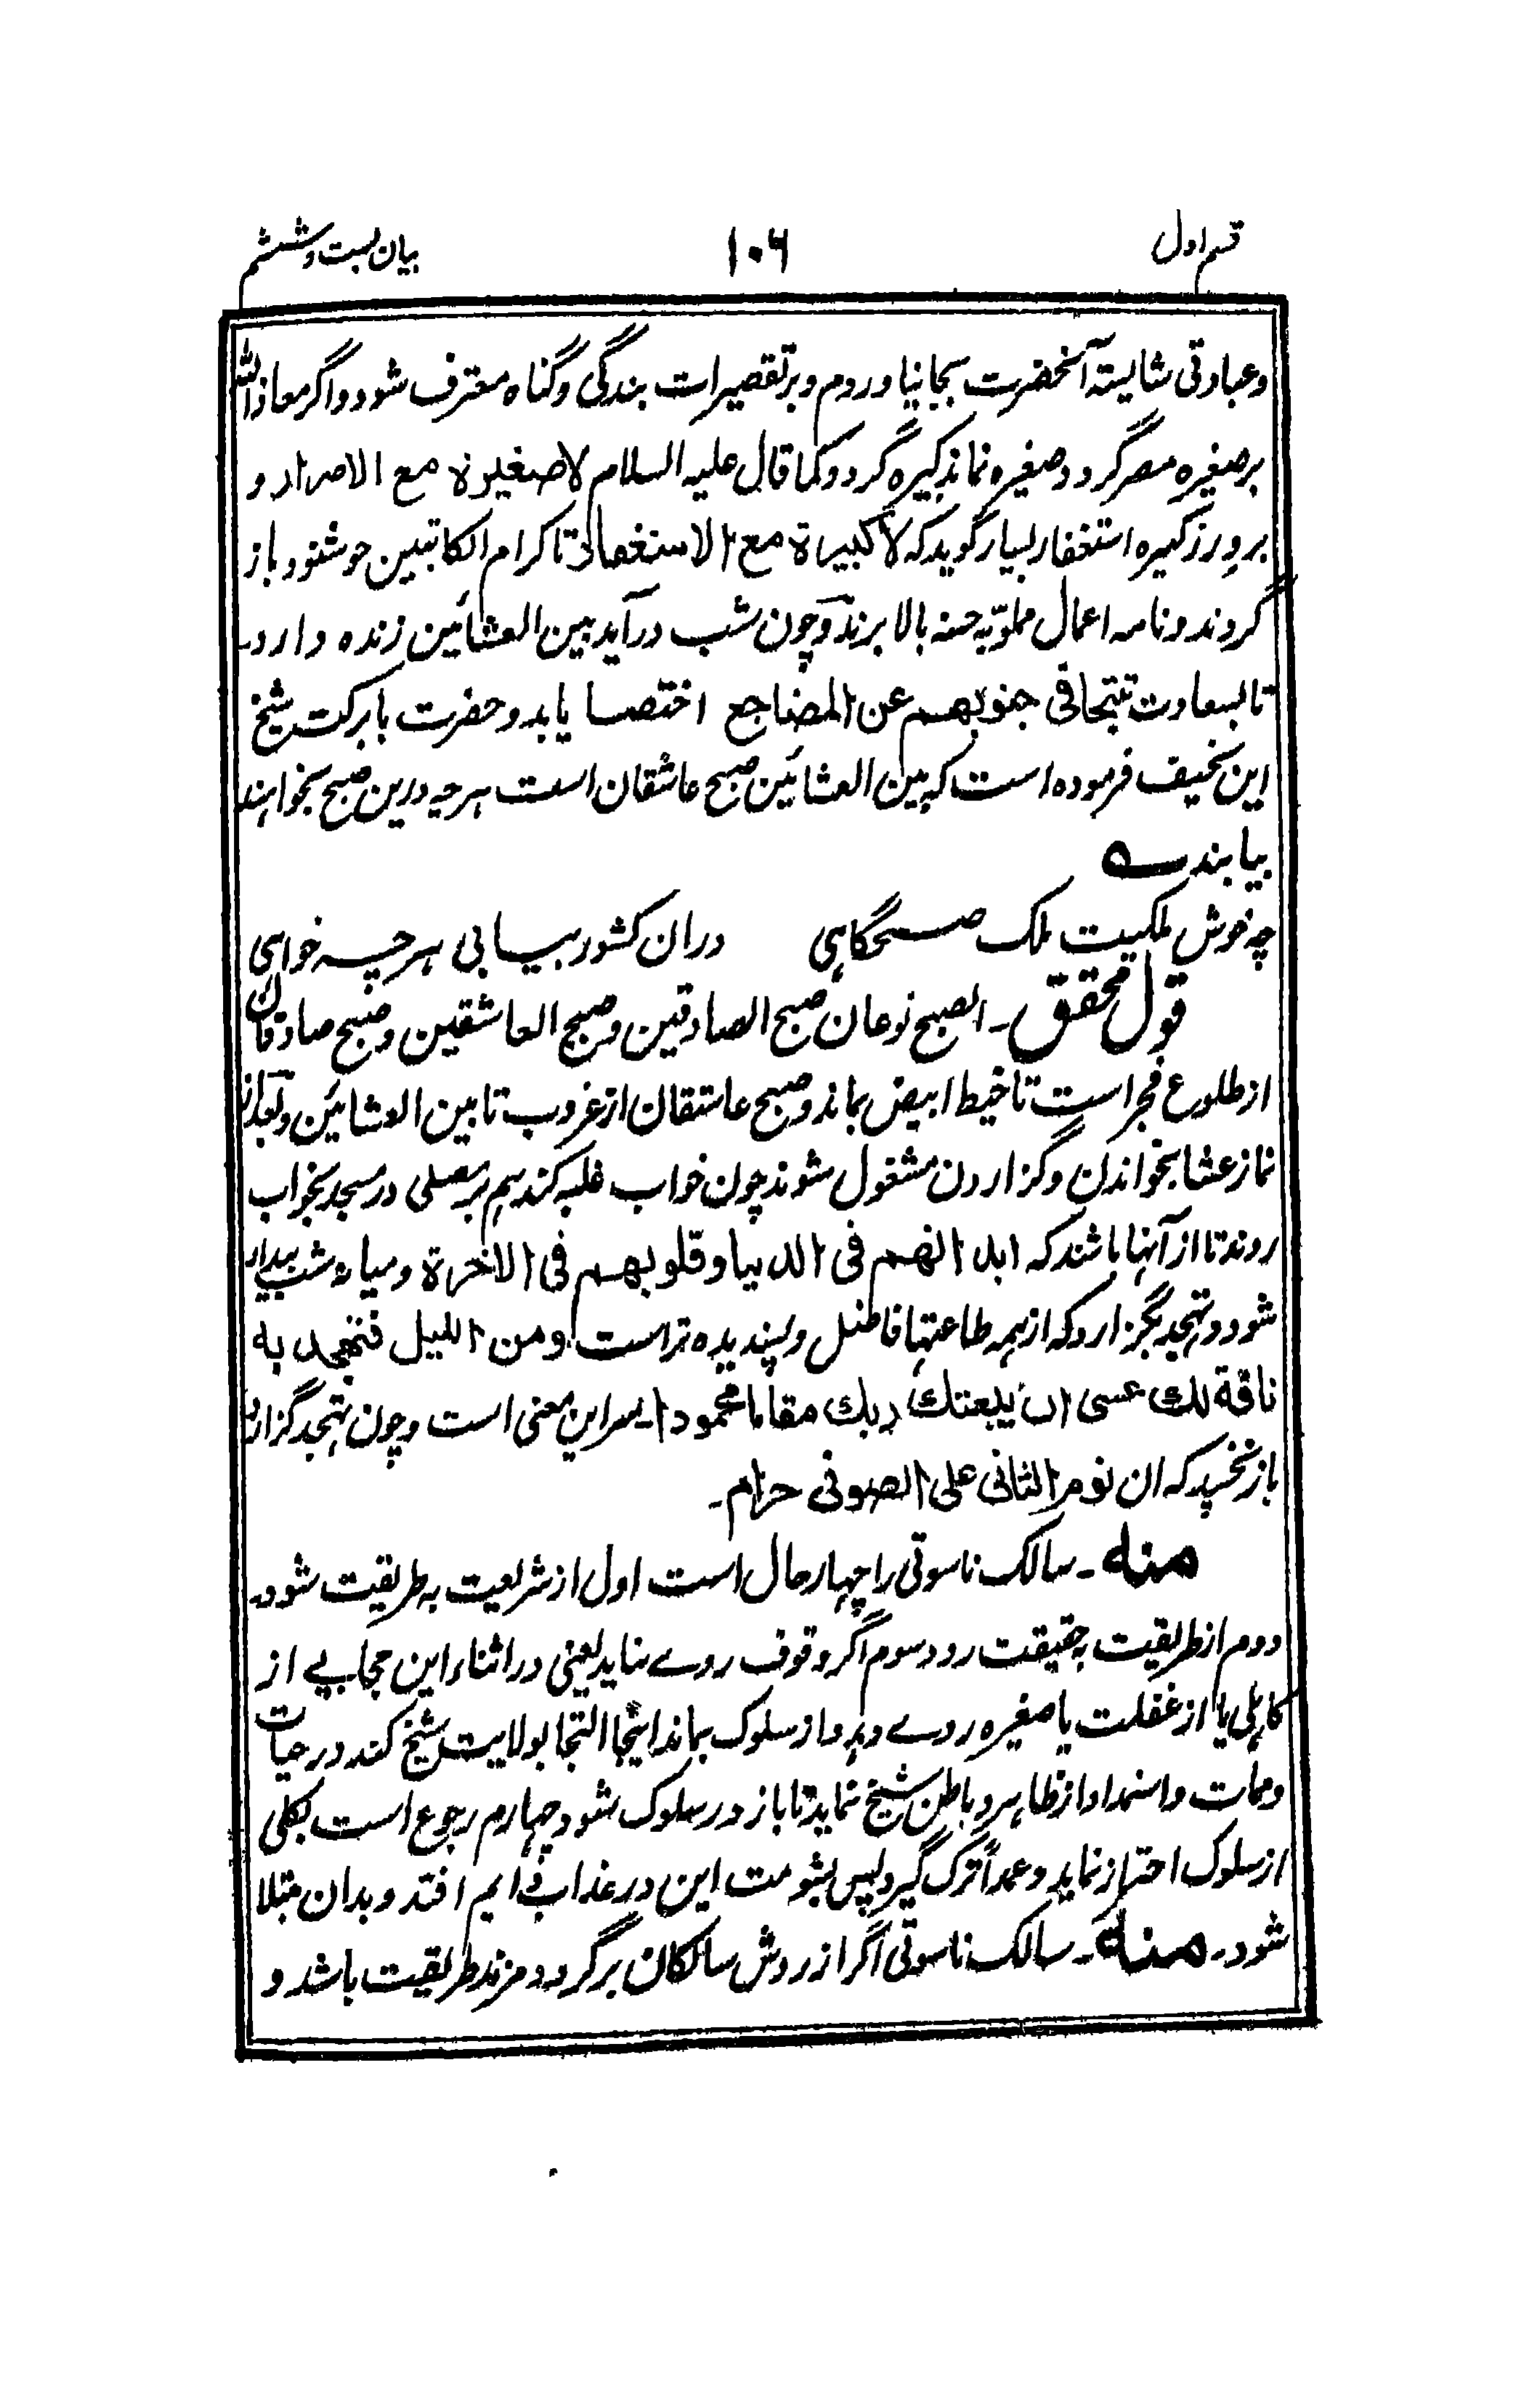 قسم اول
۱۰۶
بیان بست و ششم
و عبادتی شایستهٔ آنحضرت بجا نیاوردم و بر تقصیرات بندگی و گناه معترف شود و اگر معاذ الله
بر صغیره مصر گردد صغیره نماند کبیره گردد کما قال علیه السلام لا صغیرة مع الاصرار و
بر ورز کبیره استغفار بسیار گوید که لا کبیرة مع الاستغفار تا کرام الکاتبین خوشنود باز
گردند و نامه اعمال مملو به حسنه بالا برند و چون شب درآید بین العشائین زنده دارد۔
تا بسعادت تتجافی جنوبهم عن المضاجع اختصا یابد و حضرت بابرکت شیخ
این نحیف فرموده است که بین العشائین صبح عاشقان است هر چه درین صبح بخواهند
بیابند ؎
چه خوش ملکیت ملک صبحگاهی دران کشور بیابی هر چه خواهی
قول محقق۔ الصبح نوعان صبح الصادقین و صبح العاشقین و صبح صادقان
از طلوع فجر است تا خیط ابیض بماند و صبح عاشقان از غروب تا بین العشائین و بعد از
نماز عشا بخواندن و گزاردن مشغول شوند چون خواب غلبه کند هم بر مصلی در مسجد بخواب
روند تا از آنها باشند که ابدانهم فی الدنیا و قلوبهم فی الاخرة و میانه شب بیدار
شود و تهجد بگزارد که از همه طاعتها فاضل و پسندیده تر است و من اللیل فتهجد به
ناقة لك عسی ان یبعثك ربك مقاما محمودا۔ سر این معنی است و چون تهجد گزارد
باز نخسپد که ان نوم الثانی علی الصوفی حرام۔
منه۔ سالک ناسوتی را چهار حال است اول از شریعت به طریقت شود۔
دوم از طریقت به حقیقت رود سوم اگر وقوف روے نماید یعنی در اثناء این حجابے از
کاهلی یا از غفلت یا صغیره روے دهد و از سلوک بماند اینجا التجا بولایت شیخ کند در حیات
و ممات و استمداد از ظاهر و باطن شیخ نماید تا باز در سلوک شود چهارم رجوع است بکلی
از سلوک احتراز نماید و عمداً ترک گیرد پس بشومت این در عذاب الیم افتد و بدان مبتلا
شود۔ منه۔ سالک ناسوتی اگر از روش سالکان برگردد مرتد طریقت باشد و